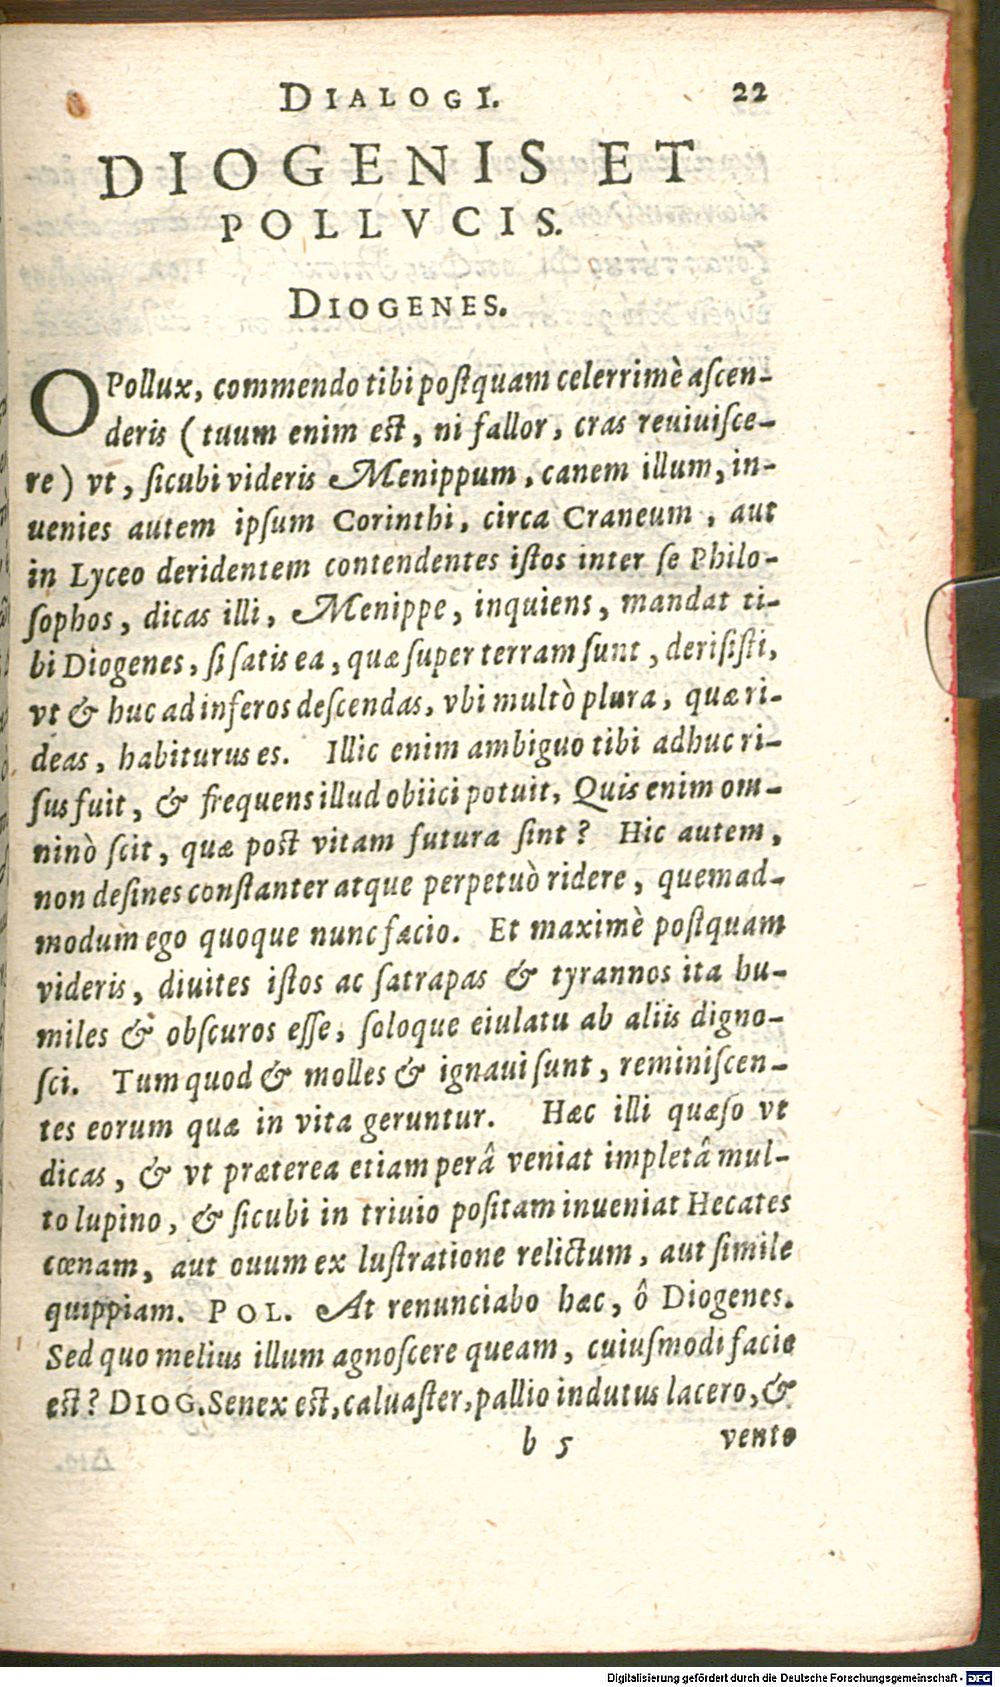 DIALOGI. 22
DIOGENIS ET
POLLVCIS.
DIOGENES.
O Pollux, commendo tibi poſtquam celerrimè aſcen-
deris (tuum enim eſt, ni fallor, cras reuiuiſce-
re) vt, ſicubi videris Menippum, canem illum, in-
uenies autem ipſum Corinthi, circa Craneum, aut
in Lyceo deridentem contendentes iſtos inter ſe Philo-
ſophos, dicas illi, Menippe, inquiens, mandat ti-
bi Diogenes, ſi ſatis ea, quæ ſuper terram ſunt, deriſiſti,
vt & huc ad inferos deſcendas, vbi multò plura, quæ ri-
deas, habiturus es. Illic enim ambiguo tibi adhuc ri-
ſus fuit, & frequens illud obiici potuit, Quis enim om-
ninò ſcit, quæ poſt vitam futura ſint? Hic autem,
non deſines conſtanter atque perpetuò ridere, quemad-
modum ego quoque nunc facio. Et maximè poſtquam
videris, diuites iſtos ac ſatrapas & tyrannos ita hu-
miles & obſcuros eſſe, ſoloque eiulatu ab aliis digno-
ſci. Tum quod & molles & ignaui ſunt, reminiſcen-
tes eorum quæ in vita geruntur. Hæc illi quæſo vt
dicas, & vt præterea etiam perâ veniat impletâ mul-
to lupino, & ſicubi in triuio poſitam inueniat Hecates
cœnam, aut ouum ex luſtratione relictum, aut ſimile
quippiam. POL. At renunciabo hæc, ô Diogenes.
Sed quo melius illum agnoſcere queam, cuiuſmodi facie
eſt? DIOG. Senex eſt, caluaſter, pallio indutus lacero, &
b 5 vento
Digitalisierung gefördert durch die Deutsche Forschungsgemeinschaft - DFG